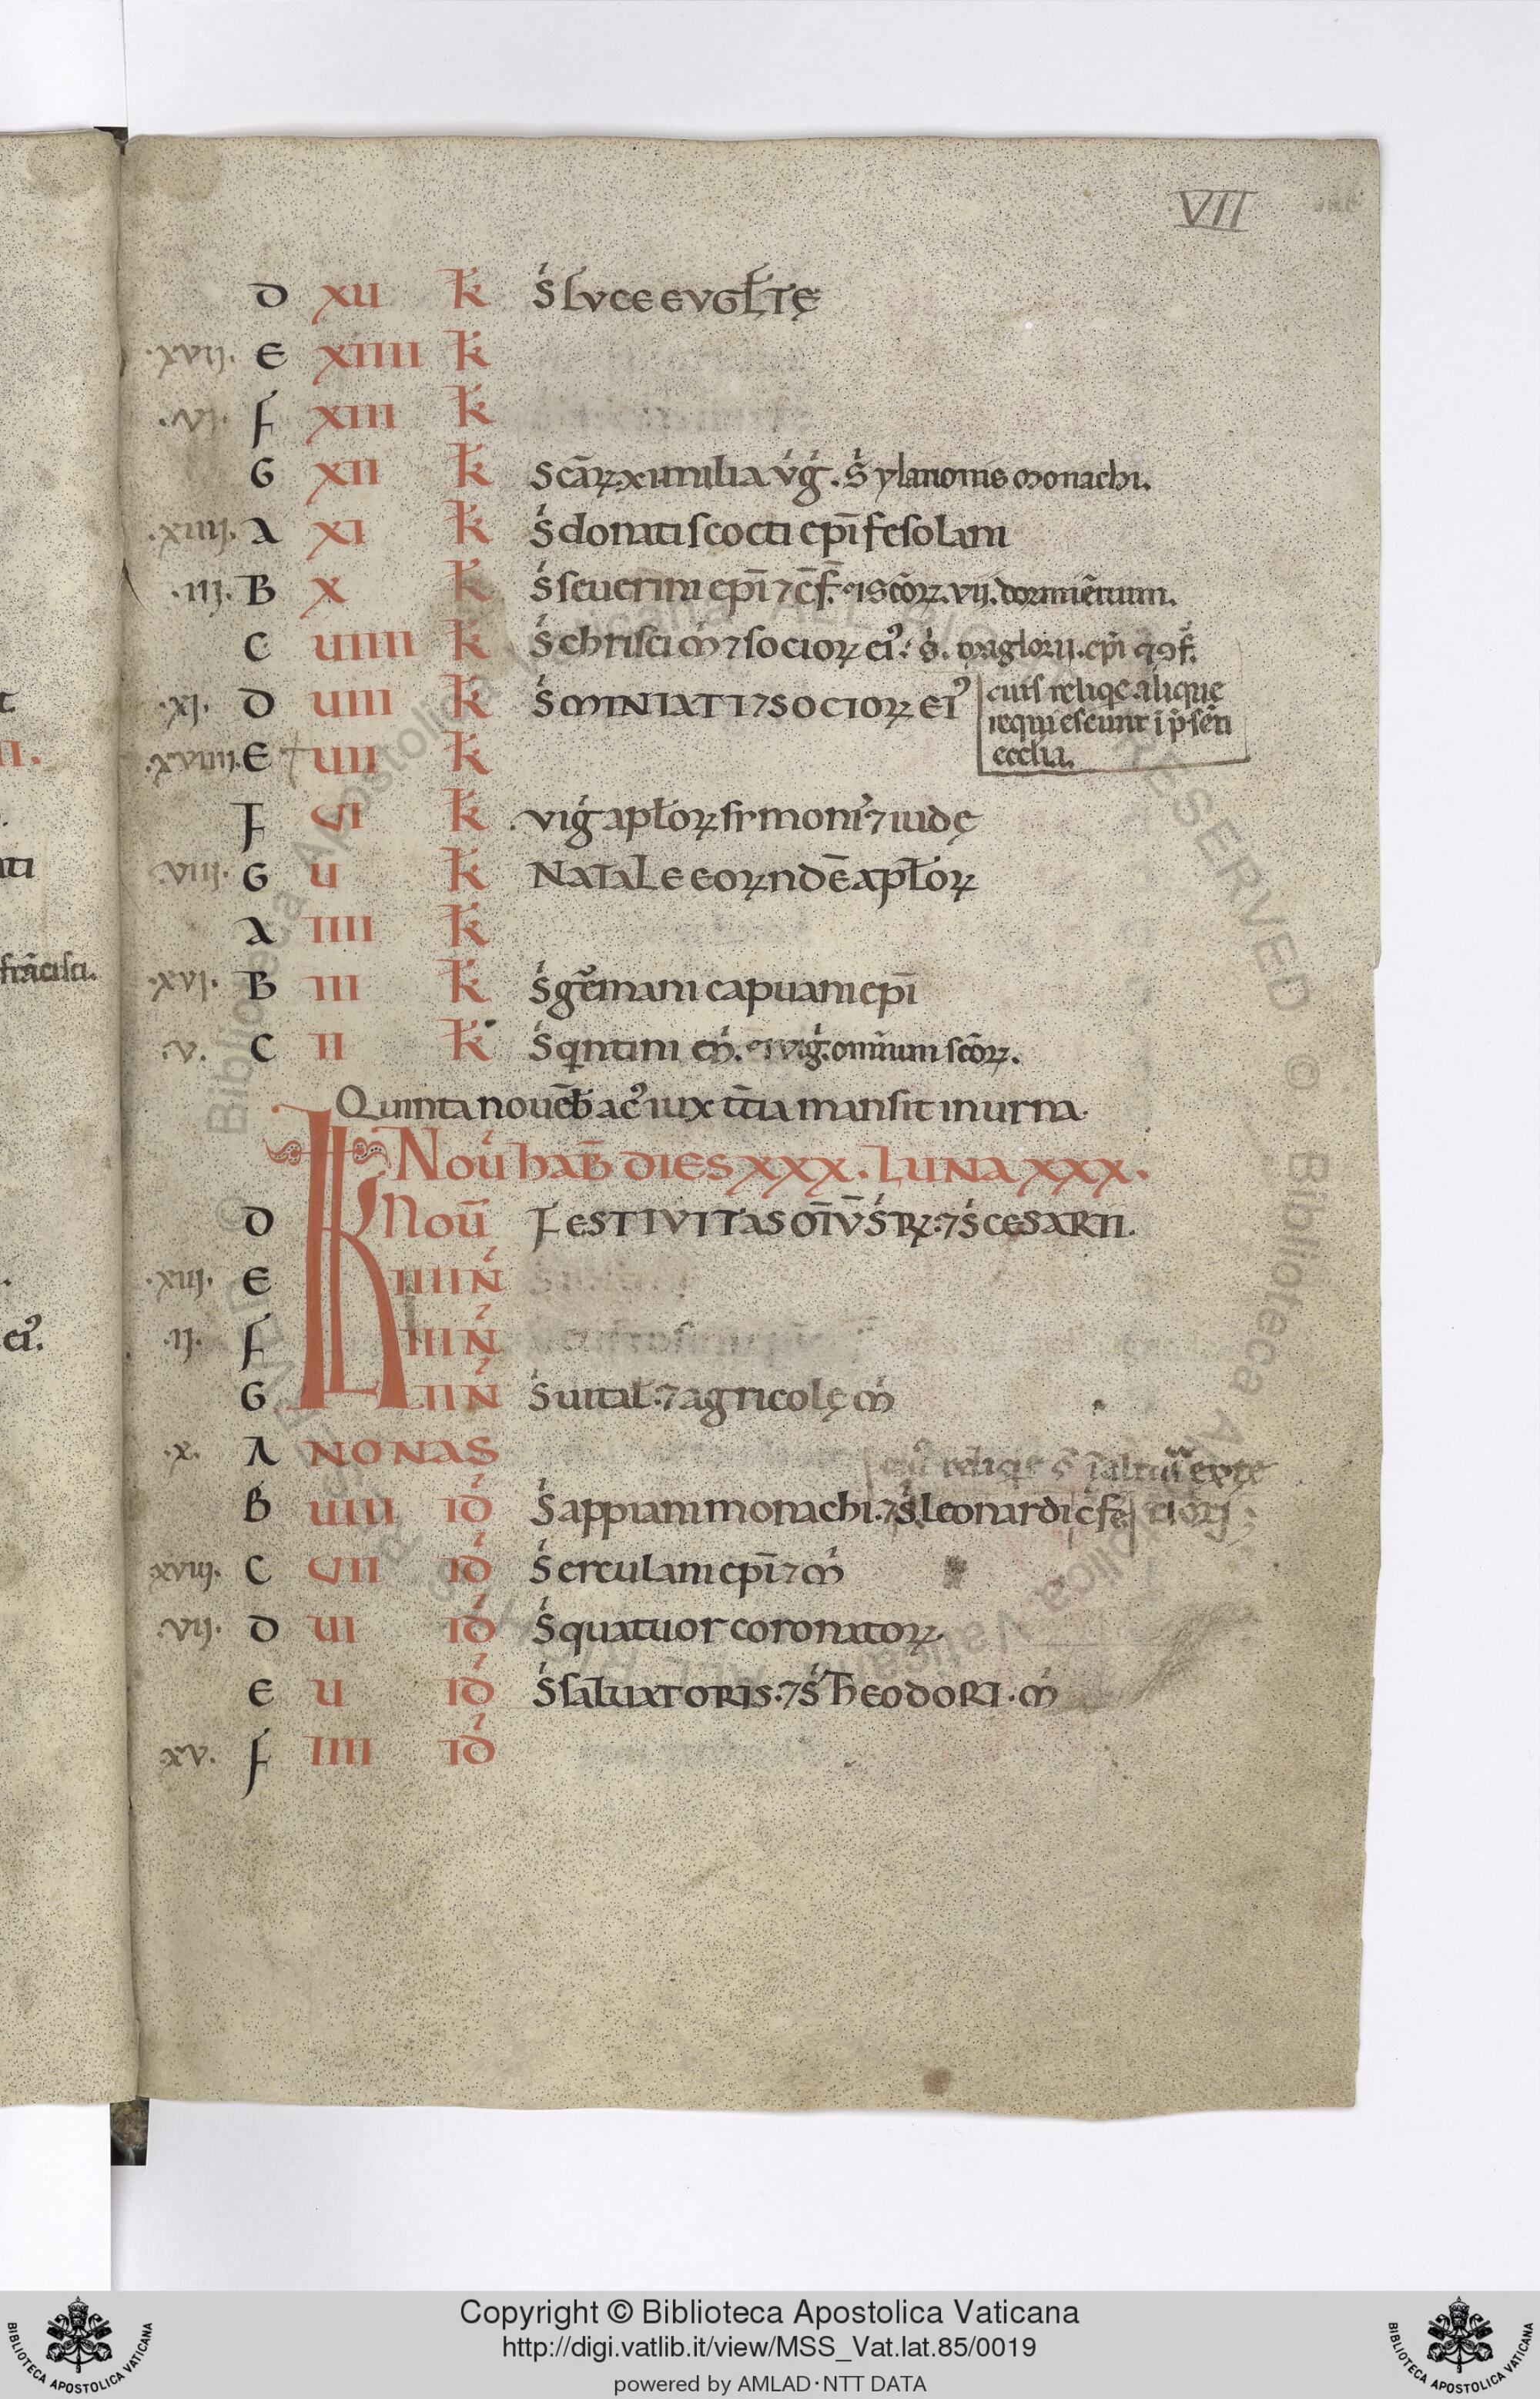 VII
D XU k̄ Ś LVCE EVGL̄TĘ
.xvıȷ. E XIIII k̄
.vȷ. F XIII k̄
G XII k̄ Scā℞ ximilia v́ǵ. Ś ylarionis monachi.
.xiiij. A XI k̄ Ś donati scocti epī fesolani
.iij. B X k̄ Ś seuerini epī ⁊ c̄f̄. et scōꝝ. vij. dormiētium.
C UIIII k̄ Ś chrisci ḿ ⁊ socioꝝ eiꝰ. ś. maglorij. epī ⁊ ꝯf.
.xj. D UIII k̄ Ś MINIATI ⁊ SOCIOꝝ EIꝰ cuiꝰ reliqͥe alique
requiescunt ī p̄sēti
eccl̄ia.
.xviiij. E UII k̄
F VI k̄ vig̍ apl̄oꝝ symoniꝰ ⁊ iudę
.viij. G U k̄ NATALE EOꝝNDĒ APL̄Oꝝ
A IIII k̄
.xvj. B III k̄ Ś gēmani capuani epī
.v. C II k̄ Ś qͥntini ḿ. et vig̍. omnium scōꝝ.
Quinta nouēb acꝰ iux tt̄ia mansit in urna.
KL Nou̍ hab̄ DIES XXX. LUNA XXX.
D k Noū FESTIVITAS OĪV̄ S̍ꝝ: ⁊ S̍ CESARII.
.xiij. E IIII N̍
.ij. F III N̍
G II N̍ Ś uital̄. ⁊ agricolę ḿ
.x. A NONAS
cuiꝰ reliqͥe
B UIII ID̍ Ś appiani monachi. ⁊ ś leonardi c̄fe
xviij. C VII ID̍ Ś erculani epī ⁊ ḿ
.vij. D UI ID̍ Ś quatuor coronatoꝝ.
E U ID̍ Ś saluatoris. ⁊ Ś THEODORI. ḿ
.xv. F IIII ID̍
t
II.
ti
frācisci.
eiꝰ.
Copyright © Biblioteca Apostolica Vaticana
http://digi.vatlib.it/view/MSS_Vat.lat.85/0019
powered by AMLAD·NTT DATA
BIBLIOTECA APOSTOLICA VATICANA
BIBLIOTECA APOSTOLICA VATICANA